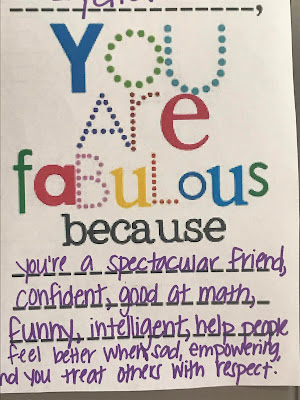 YOU
Are
fabulous
because
you're a spectacular friend,
confident, good at math,
funny, intelligent, help people
feel better when sad, empowering,
and you treat others with respect.